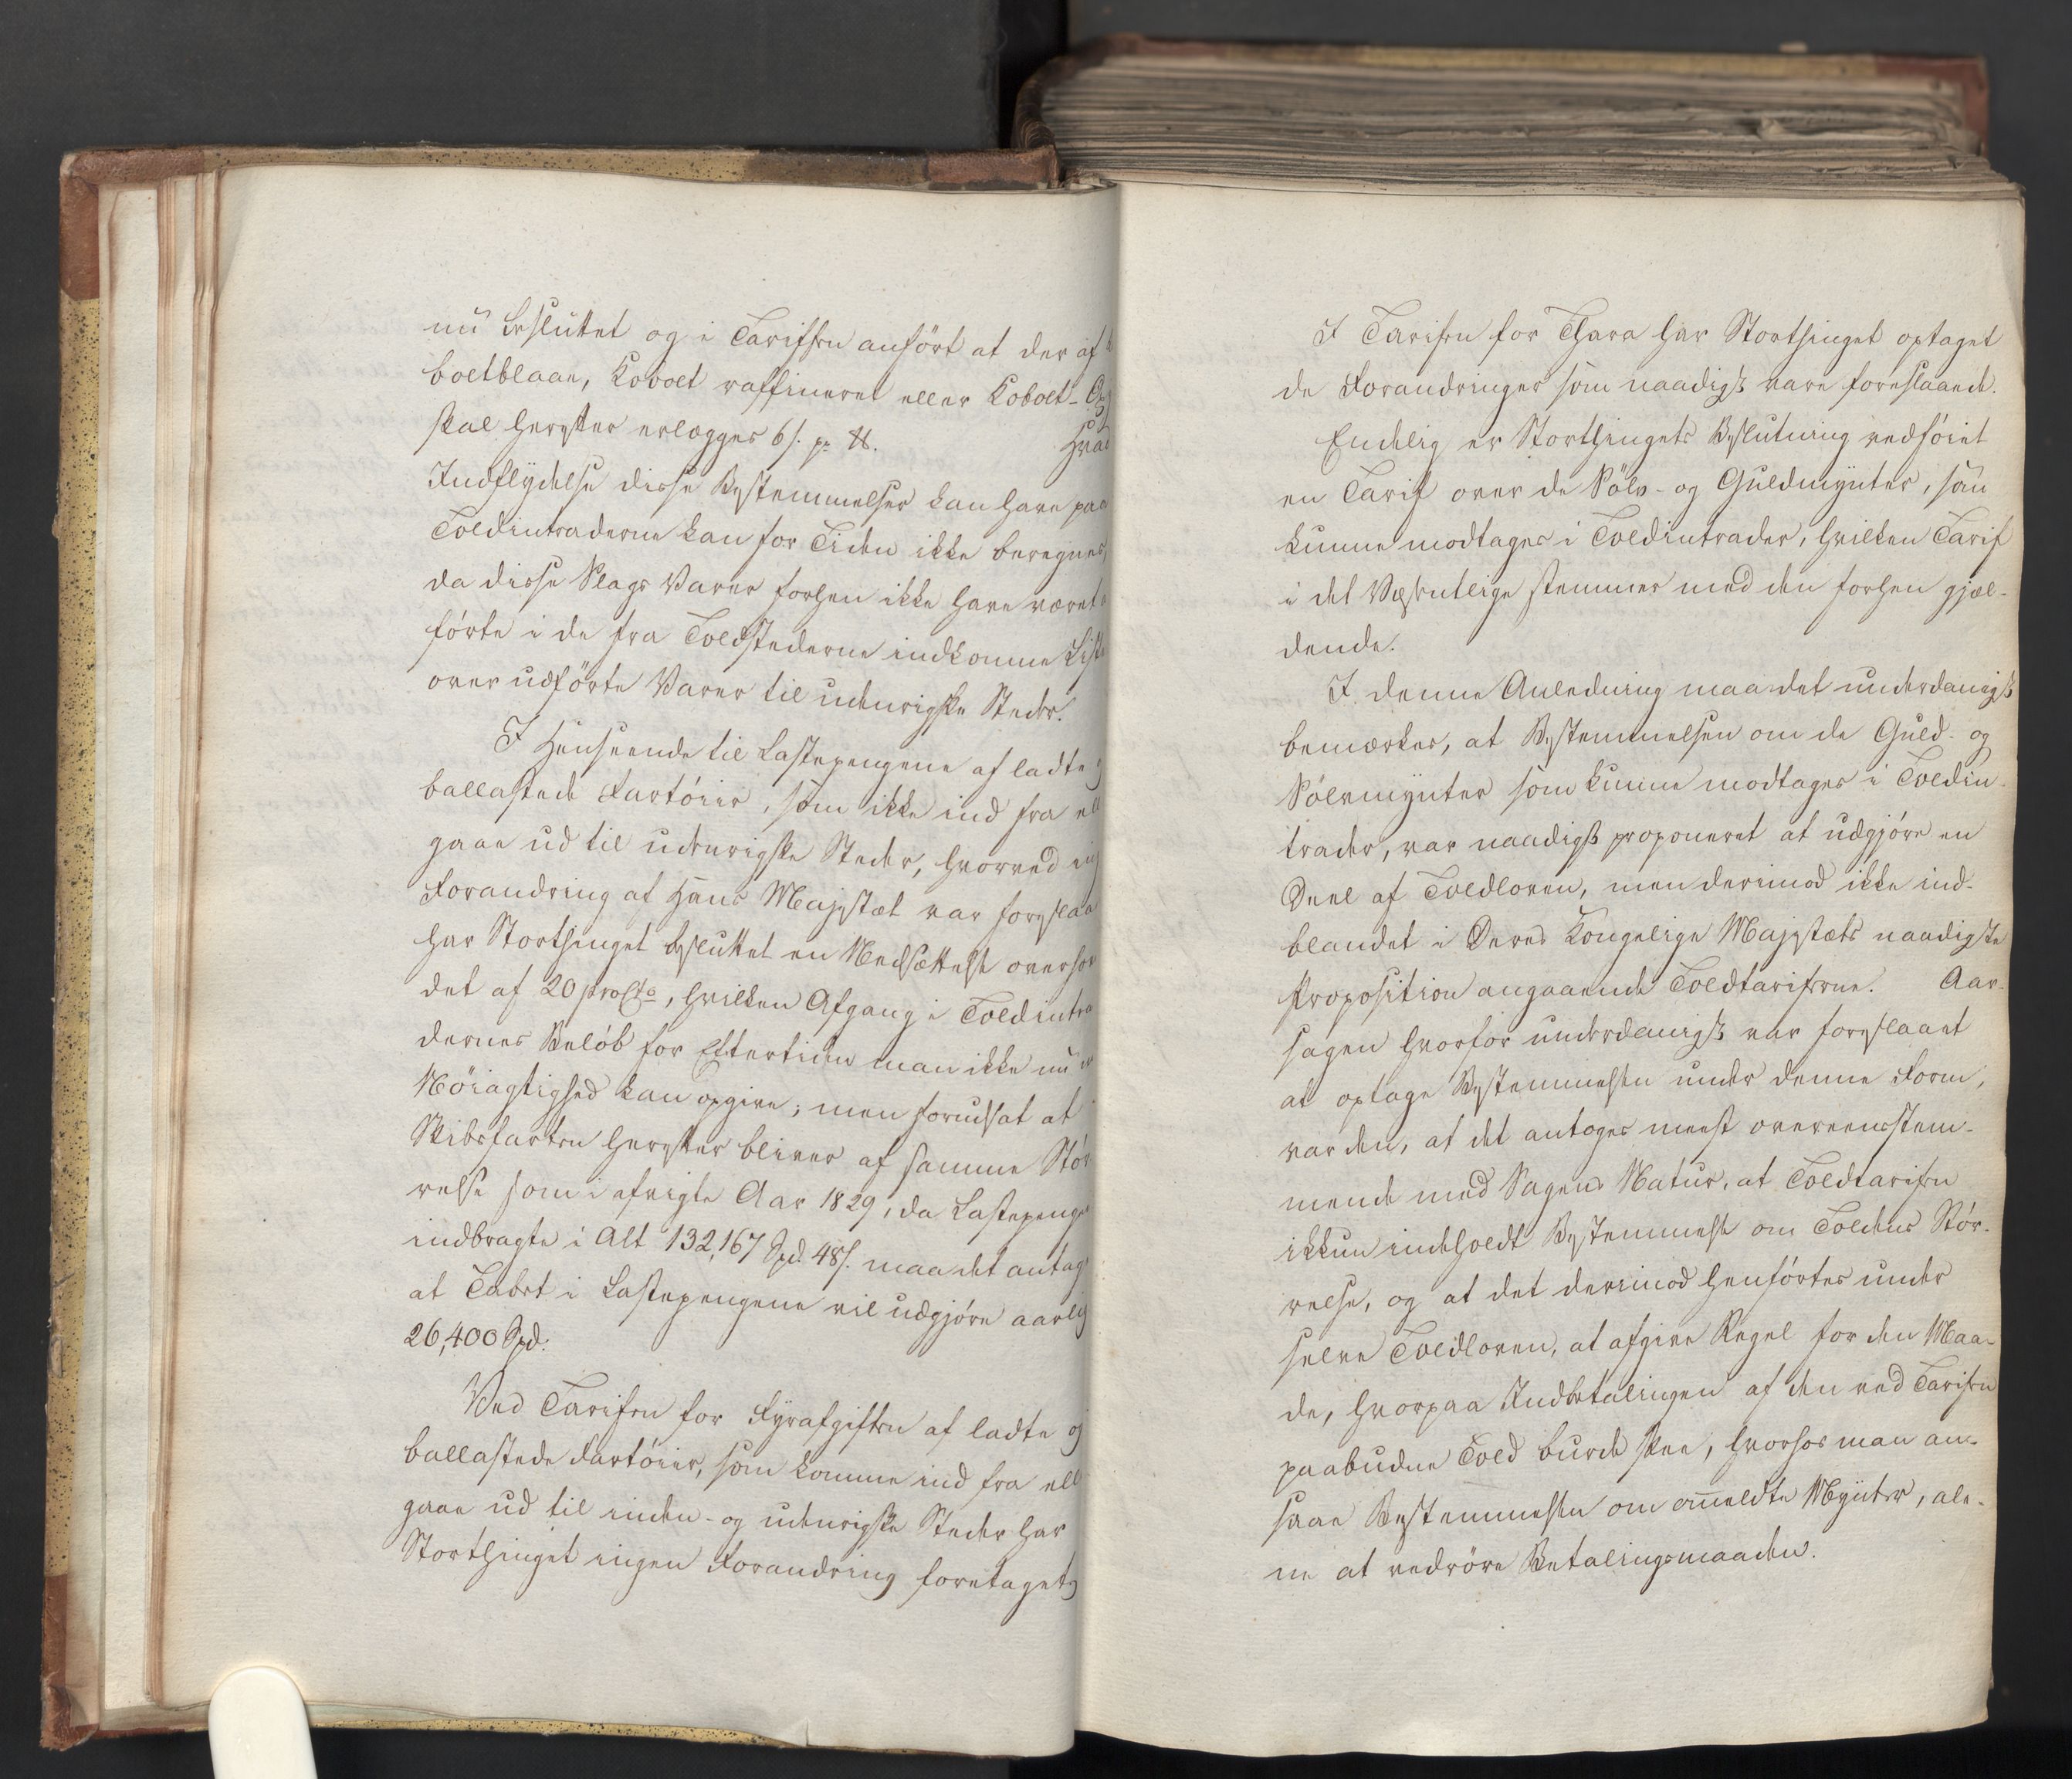 nu besluttet og i Tariffen anført at der af
boltblaae, Kobolt raffineret eller Kobolt-
skal herefter erlægges 6 s. pr. ℔. Hvad
Indflydelse disse Bestemmelser kan have paa
Toldintraderne kan for Tiden ikke beregnes,
da disse Slags Varer forhen ikke have været
førte i de fra Toldstederne indkomne Liste
over udførte Varer til udenrigske Steder.
I Henseende til Lastepengene af ladte
ballastede Fartøier, som ikke ind fra ell
gaae ud til udenrigske Steder, hvorved
Forandring af Hans Majestæt var foreslaa
har Storthinget besluttet en Nedsættelse overho
det af 20 proCto, hvilken Afgang i Toldintra
dernes Beløb for Eftertiden man ikke nu
Nøiagtighed kan opgive; men forudsat at
Skibsfarten herefter bliver af samme Stør
relse som i afvigte Aar 1829, da Lastepenge
indbragte i Alt 132,167 Spd. 48 s. maa det antag
at Tabet i Lastepengene vil udgjøre aarlig
26,400 Spd.
Ved Tarifen for Fyrafgiften af ladte og
ballastede Fartøier, som komme ind fra ell
gaae ud til inden- og udenrigske Steder har
Storthinget ingen Forandring foretaget,
I Tarifen for Thara har Storthinget optaget
de Forandringer som naadigst vare foreslaaede.
Endelig er Storthingets Beslutning vedføiet
en Tarif over de Sølv- og Guldmynter, som
kunne modtages i Toldintrader, hvilken Tarif
i det Væsentlige stemmer med den forhen gjæl-
dende.
I denne Anledning maa det underdanigst
bemærkes, at Bestemmelsen om de Guld- og
Sølvmynter som kunne modtages i Toldin-
trader, var naadigst proponeret at udgjøre en
Deel af Toldloven, men derimod ikke ind-
blandet i Deres Kongelige Majestæts naadigste
Proposition angaaende Toldtarifferne. Aar-
sagen hvorfor underdanigst var foreslaaet
at optage Bestemmelsen under denne Form,
var den, at det antoges meest overeensstem-
mende med Sagens Natur, at Toldtarifen
ikkun indeholdt Bestemmelse om Toldens Stør-
relse, og at det derimod henførtes under
selve Toldloven, at afgive Regel for den Maa-
de, hvorpaa Indbetalingen af den ved Tarifen
paabudne Told burde skee, hvorhos man an-
saae Bestemmelsen om ommeldte Mynter, ale-
ne at vedrøre Betalingsmaaden.